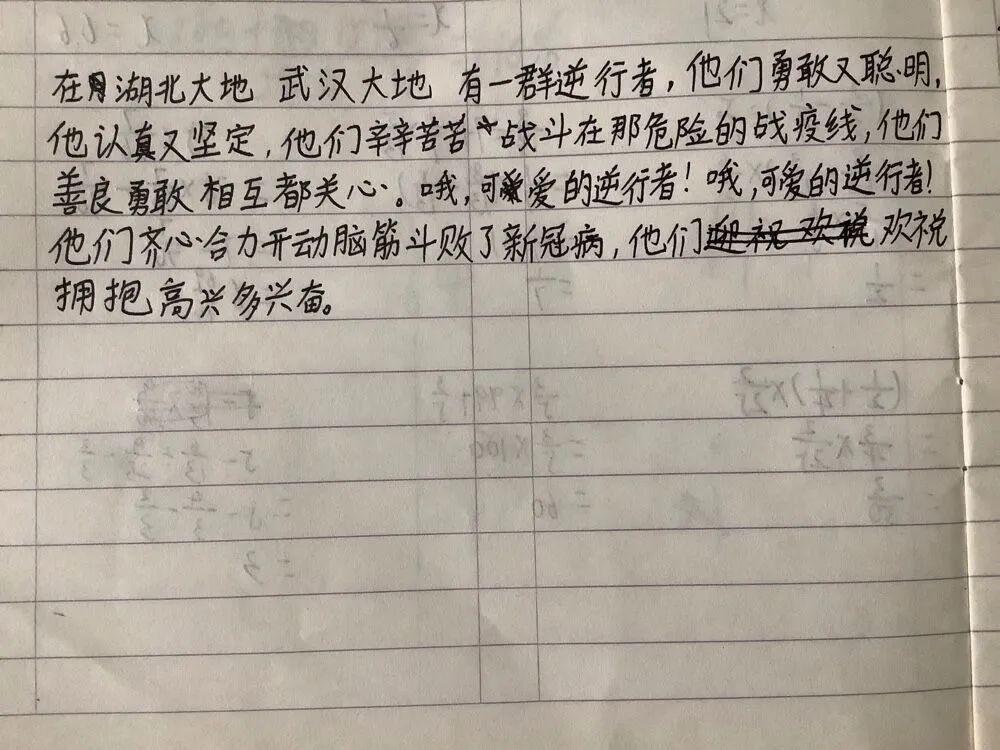 在湖北大地 武汉大地 有一群逆行者，他们勇敢又聪明，
他认真又坚定，他们辛辛苦苦*战斗在那危险的战疫线，他们
善良勇敢相互都关心。哦，可爱的逆行者！哦，可爱的逆行者！
他们齐心合力开动脑筋斗败了新冠病，他们欢祝
拥抱高兴多兴奋。